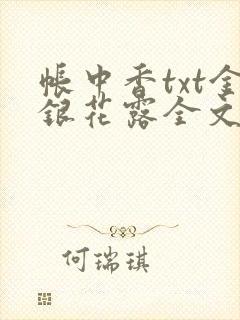 帐中香txt金
银花露全文
何瑞琪